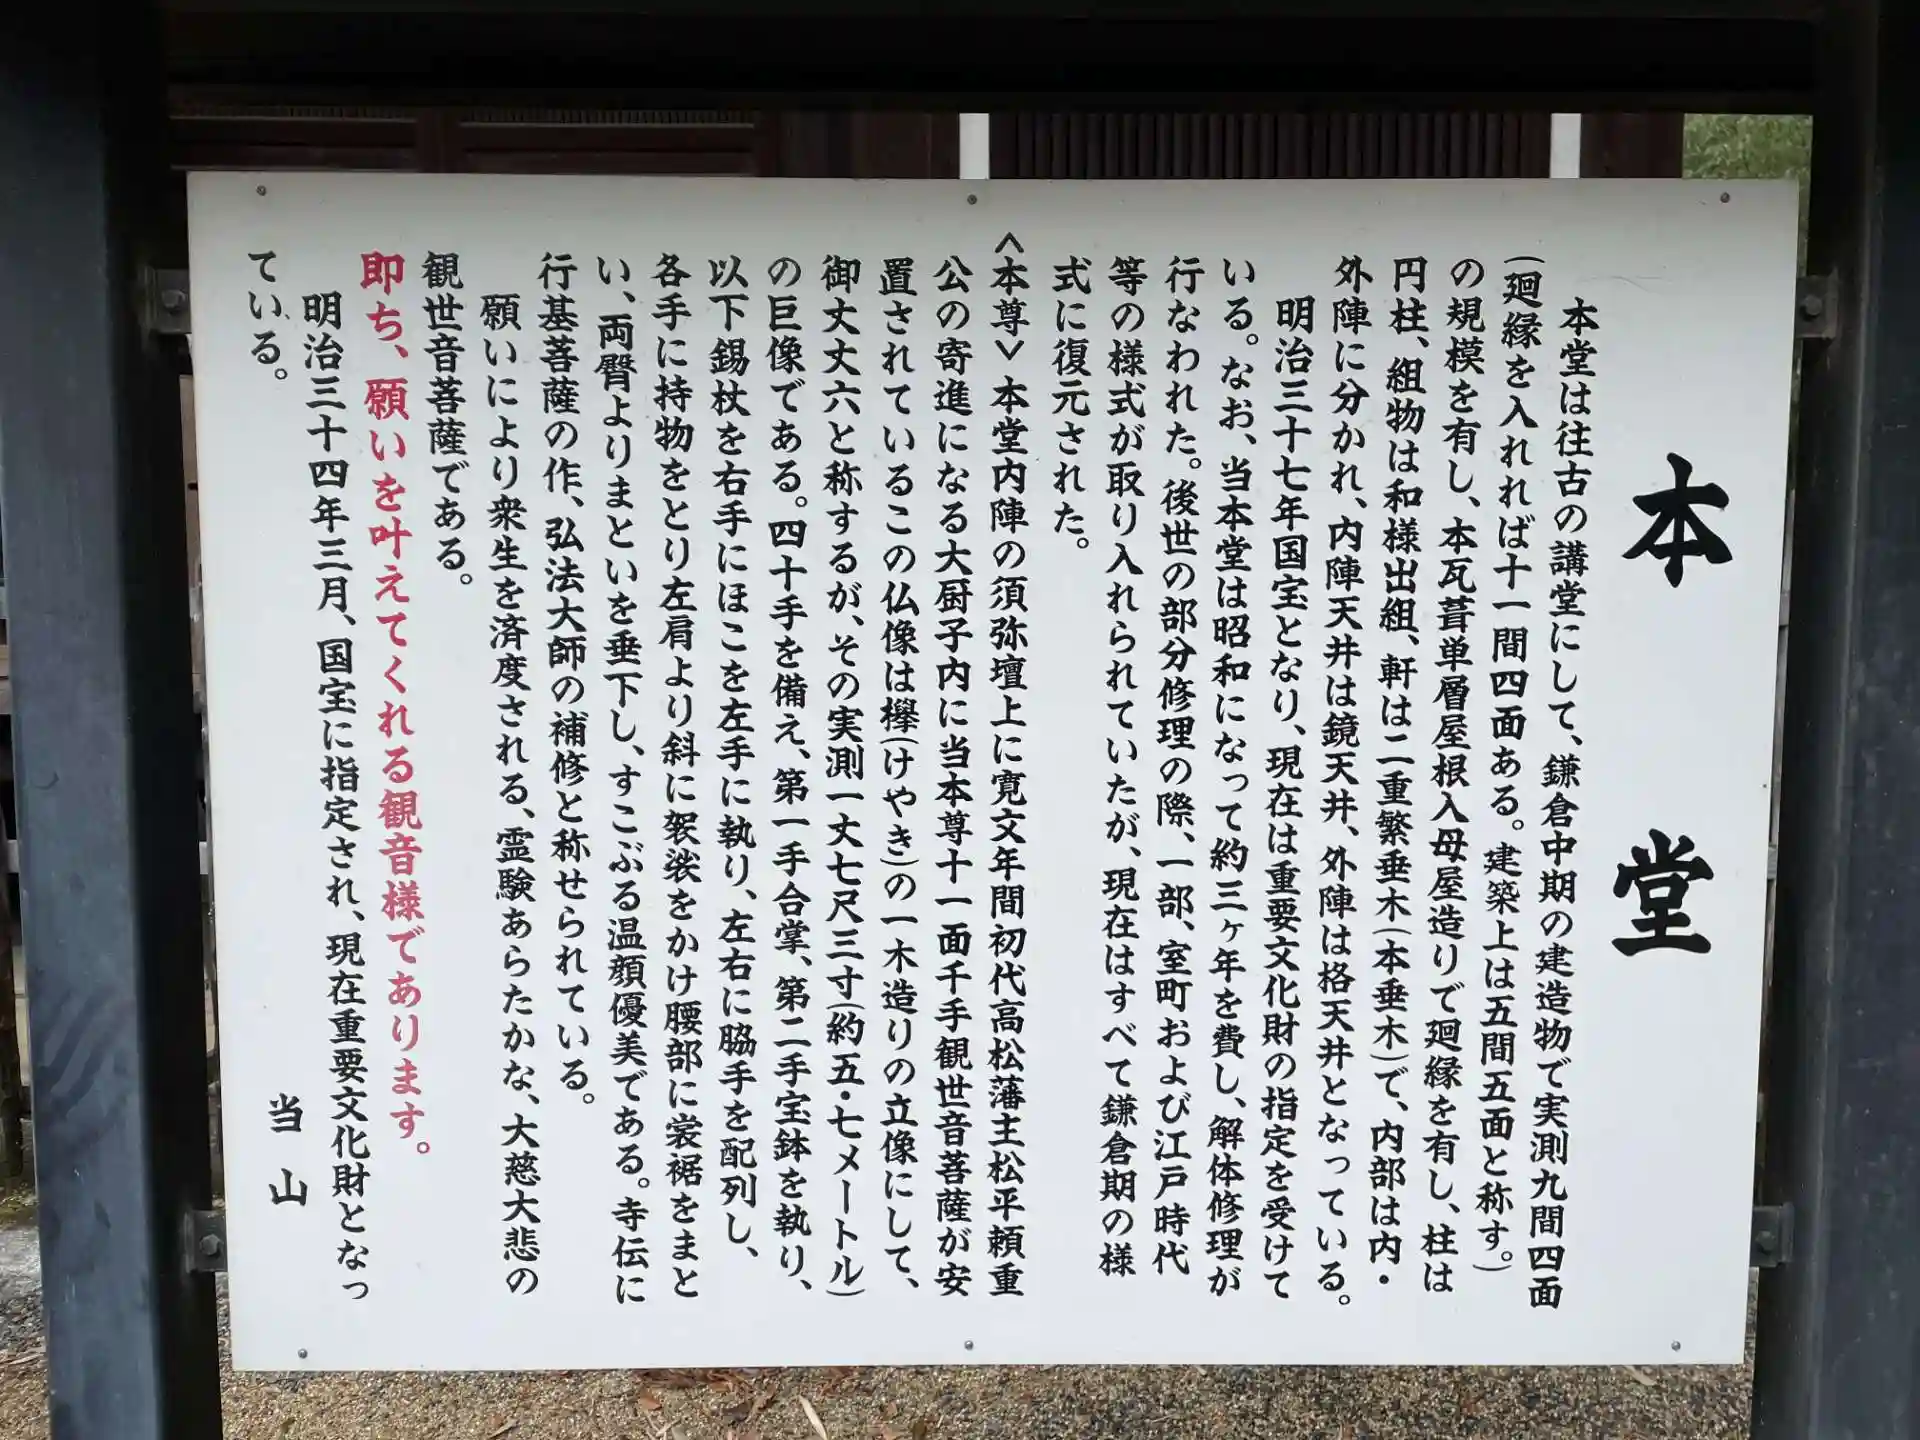 本堂
本堂は往古の講堂にして、鎌倉中期の建造物で実測九間四面
(廻縁を入れれば十一間四面ある。建築上は五間五面と称す。)
の規模を有し、本瓦葺単層屋根入母屋造りで廻縁を有し、柱は
円柱、組物は和様出組、軒は二重繁垂木(本垂木)で、内部は内・
外陣に分かれ、内陣天井は鏡天井、外陣は格天井となっている。
明治三十七年国宝となり、現在は重要文化財の指定を受けて
いる。なお、当本堂は昭和になって約三ヶ年を費し、解体修理が
行なわれた。後世の部分修理の際、一部、室町および江戸時代
等の様式が取り入れられていたが、現在はすべて鎌倉期の様
式に復元された。
<本尊> 本堂内陣の須弥壇上に寛文年間初代高松藩主松平頼重
公の寄進になる大厨子内に当本尊十一面千手観世音菩薩が安
置されているこの仏像は欅(けやき)の一木造りの立像にして、
御丈丈六と称するが、その実測一丈七尺三寸(約五・七メートル)
の巨像である。四十手を備え、第一手合掌、第二手宝鉢を執り、
以下錫杖を右手にほこを左手に執り、左右に脇手を配列し、
各手に持物をとり左肩より斜に袈裟をかけ腰部に裳裾をまと
い、両臀よりまといを垂下し、すこぶる温顔優美である。寺伝に
行基菩薩の作、弘法大師の補修と称せられている。
願いにより衆生を済度される、霊験あらたかな、大慈大悲の
観世音菩薩である。
即ち、願いを叶えてくれる観音様であります。
明治三十四年三月、国宝に指定され、現在重要文化財となっ
ている。
当山